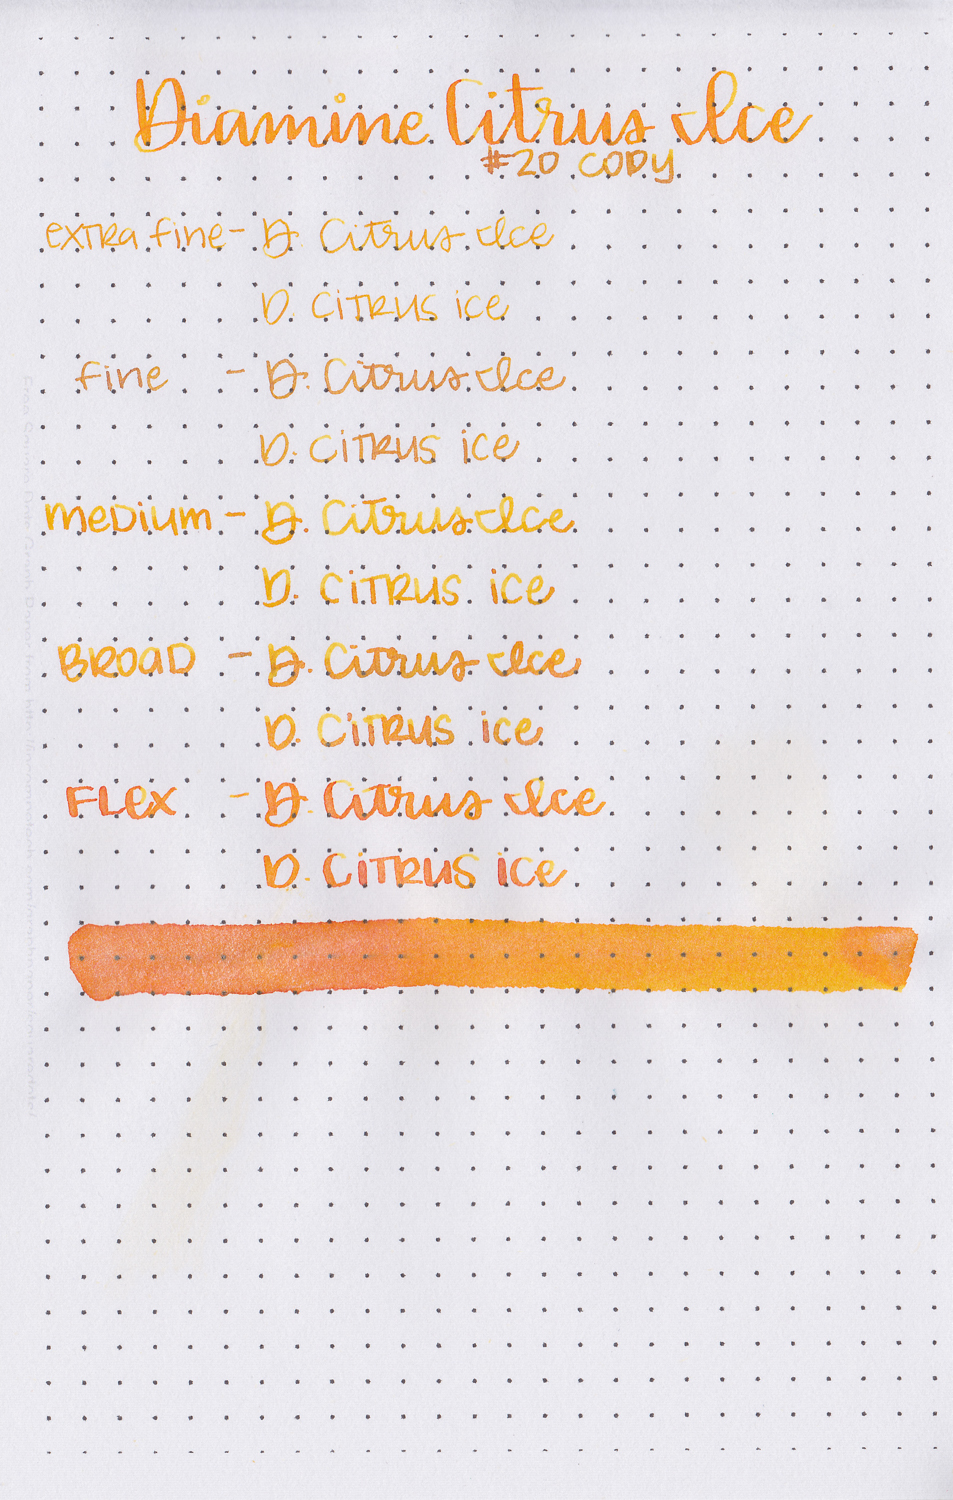 Diamine Citrus Ice
#20 CODY
extra fine - D. Citrus Ice
D. CiTRUS ice
fine - D. Citrus Ice
D. CiTRUS ice
MeDium - D. Citrus Ice
D. CiTRUS ice
BROAD - D. Citrus Ice
D. CiTRUS ice
FLex - D. Citrus Ice
D. CiTRUS ice